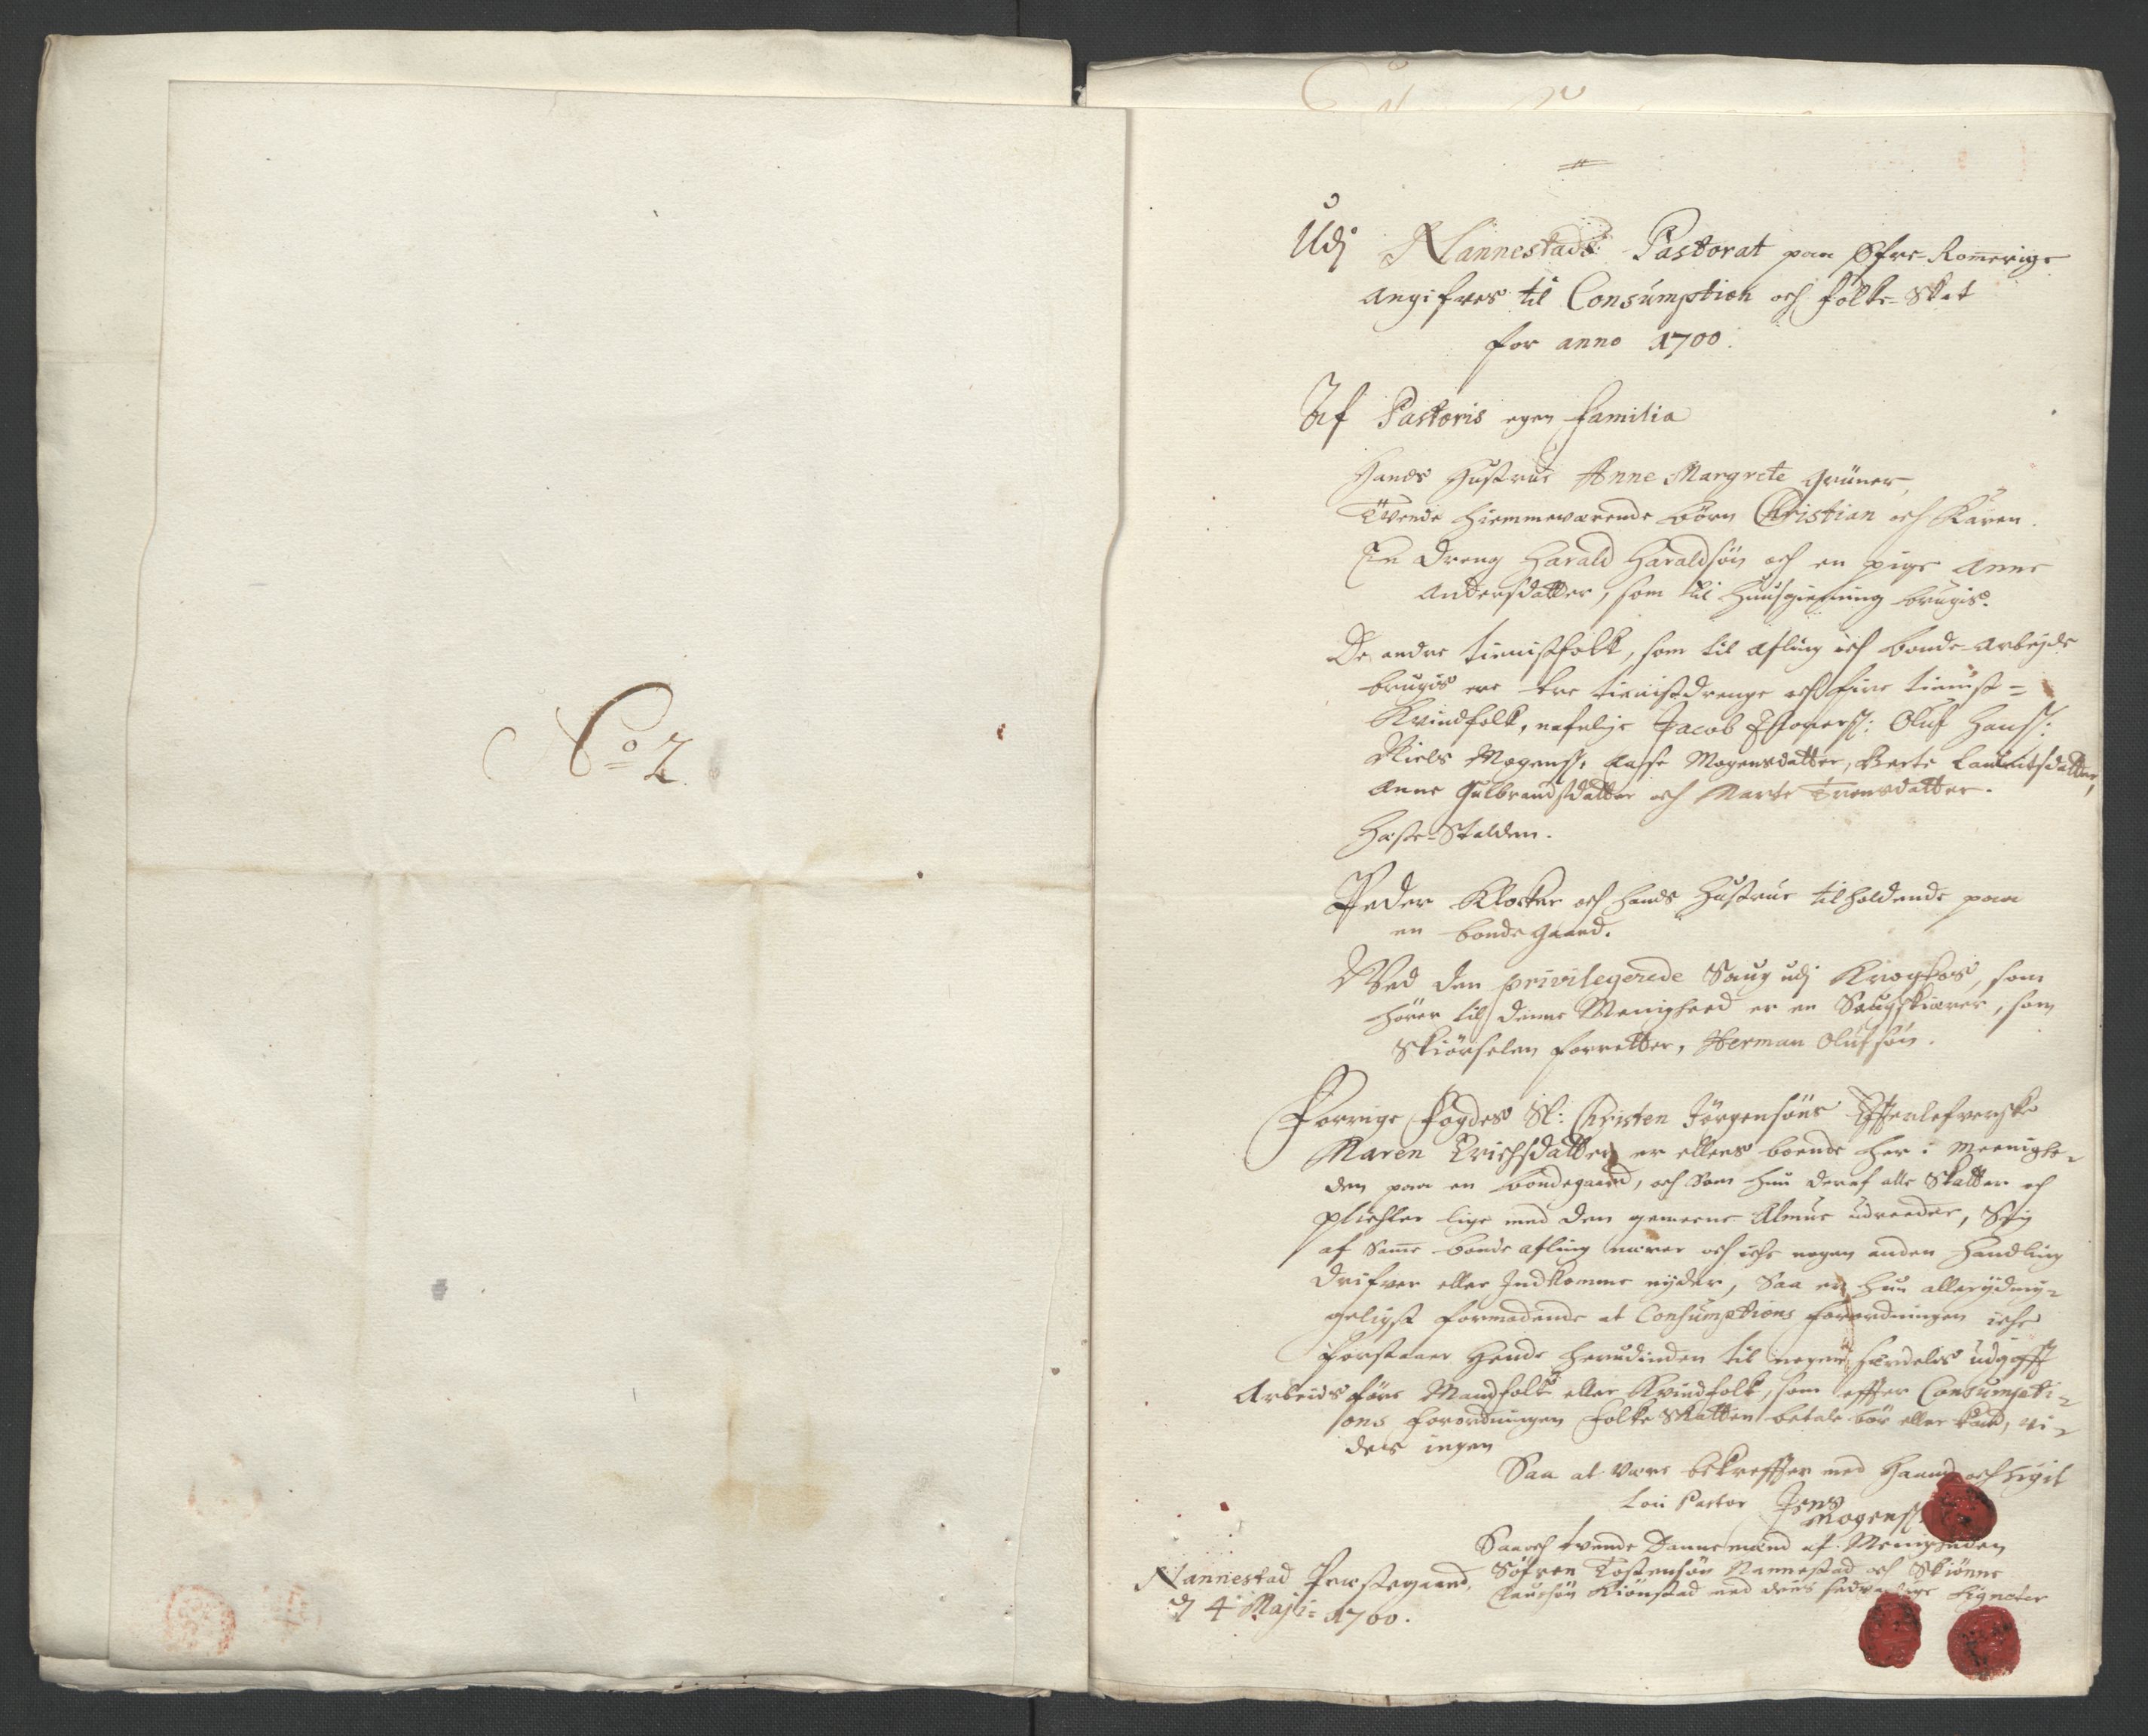 No 2
Udj Nannestads Pastorat paa Øfre-Romerige
angifves til Consumption och folke-Skat
for anno 1700.
Af Pastoris egen familia
Hands Hustrue Anne Margrete Grüner,
Tvende hiemmeværende börn Christian och Karen.
En dreng Harald Haraldsön och en pige Anne
Andersdatter, som til huusgierning brugis.
De andre tienistfolk, som til afling och bonde-arbeyde
brugis ere tre tienistdrenge och fire tienist=
Kvindfolk, nefnlige Jacob Ifvers: Oluf Hans:
Niels Mogens: Aase Mogensdatter, Berte Lauritsdatter,
Anne Gulbrandsdatter och Marte Tronsdatter.
Heste-Stalden.
Peder Klocker och hands Hustrue tilholdende paa
en bondegaard.
Ved den privilegerede Saug udj Krogfos, som
hører til denne Menighed er en Saugskiærer, som
Skiörselen forretter, Herman Olufsön.
Forrige Fogdes Sl: Christen Jörgensöns Effterlefverske
Maren Erichsdatter er ellers boende her i Meenighe-
den paa en bondegaard, och som hun deraf alle Skatter och
plichter lige med den gemeene Almue udreeder, Sig
af samme bonde afling nærer och iche nogen anden handling
drifver eller Indkomme nyder, Saa er hun allerydmy-
geligst formodende at Consumptions forordningen iche
forstaaer Hende herudinden til nogen særdelis udgifft
Arbeidsföre Mandfolk eller Kvindfolk, som effter Consumpti-
ons forordningen folke Skatten betale bör eller kand, vi-
des ingen
Saa at være bekreffter med Haand och Sigil
Loci Pastor Jens
Mogens:
Saa och tvende Dannemænd af Menigheden
Söfren Tostensön Nannestad och Skiönne
Clausön Kiönstad med deris sedvanlige Signeter
Nannestad Prestegaard,
d 4 Maji 1700.